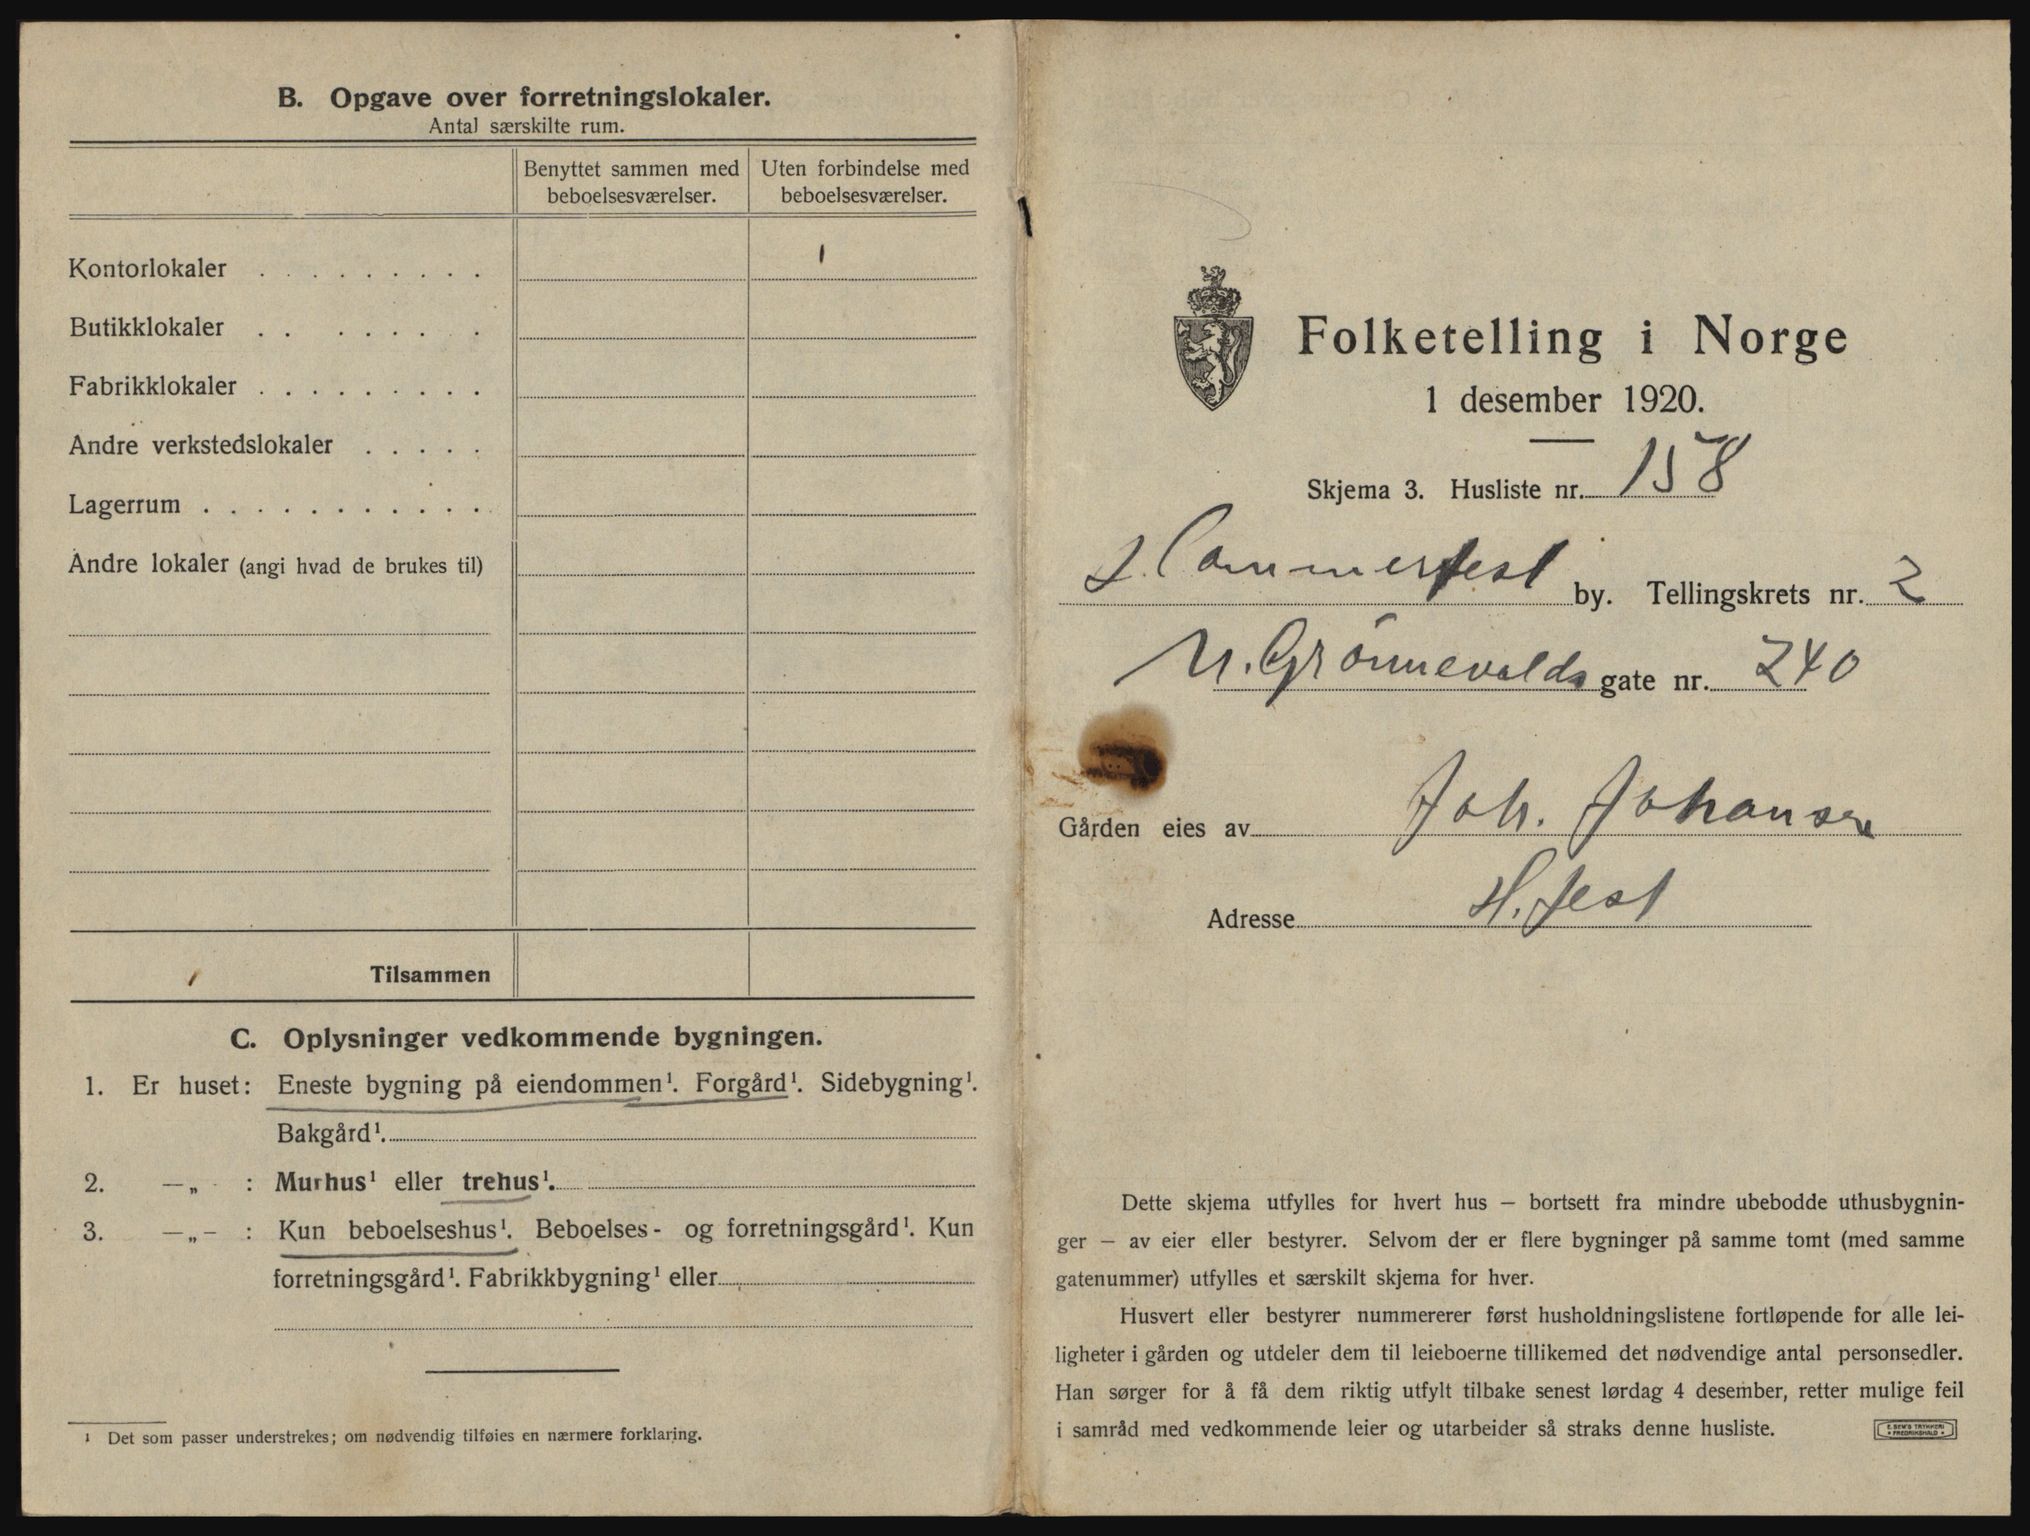 B. Opgave over forretningslokaler.
Antal særskilte rum.
Benyttet sammen med beboelsesværelser.
Uten forbindelse med beboelsesværelser.
Kontorlokaler . . . . . . . . . 1
Butikklokaler . . . . . . . .
Fabrikklokaler . . . . . . . . .
Andre verkstedslokaler . . . . .
Lagerrum . . . . . . . . . . .
Andre lokaler (angi hvad de brukes til)
Tilsammen
C. Oplysninger vedkommende bygningen.
1. Er huset: Eneste bygning på eiendommen¹. Forgård¹. Sidebygning¹.
Bakgård¹.
2. —„- : Murhus¹ eller trehus¹.
3. —„- : Kun beboelseshus¹. Beboelses- og forretningsgård¹. Kun
forretningsgård¹. Fabrikkbygning¹ eller
¹ Det som passer understrekes; om nødvendig tilføies en nærmere forklaring.
Folketelling i Norge
1 desember 1920.
Skjema 3. Husliste nr. 158
Hammerfest by. Tellingskrets nr. 2
N. Grønnevolds gate nr. 240
Gården eies av Joh. Johansen
Adresse H.fest
Dette skjema utfylles for hvert hus — bortsett fra mindre ubebodde uthusbygnin-
ger — av eier eller bestyrer. Selvom der er flere bygninger på samme tomt (med samme
gatenummer) utfylles et særskilt skjema for hver.
Husvert eller bestyrer nummererer først husholdningslistene fortløpende for alle lei-
ligheter i gården og utdeler dem til leieboerne tillikemed det nødvendige antal personsedler.
Han sørger for å få dem riktig utfylt tilbake senest lørdag 4 desember, retter mulige feil
i samråd med vedkommende leier og utarbeider så straks denne husliste.
E. SEM'S TRYKKERI
FREDRIKSHALD